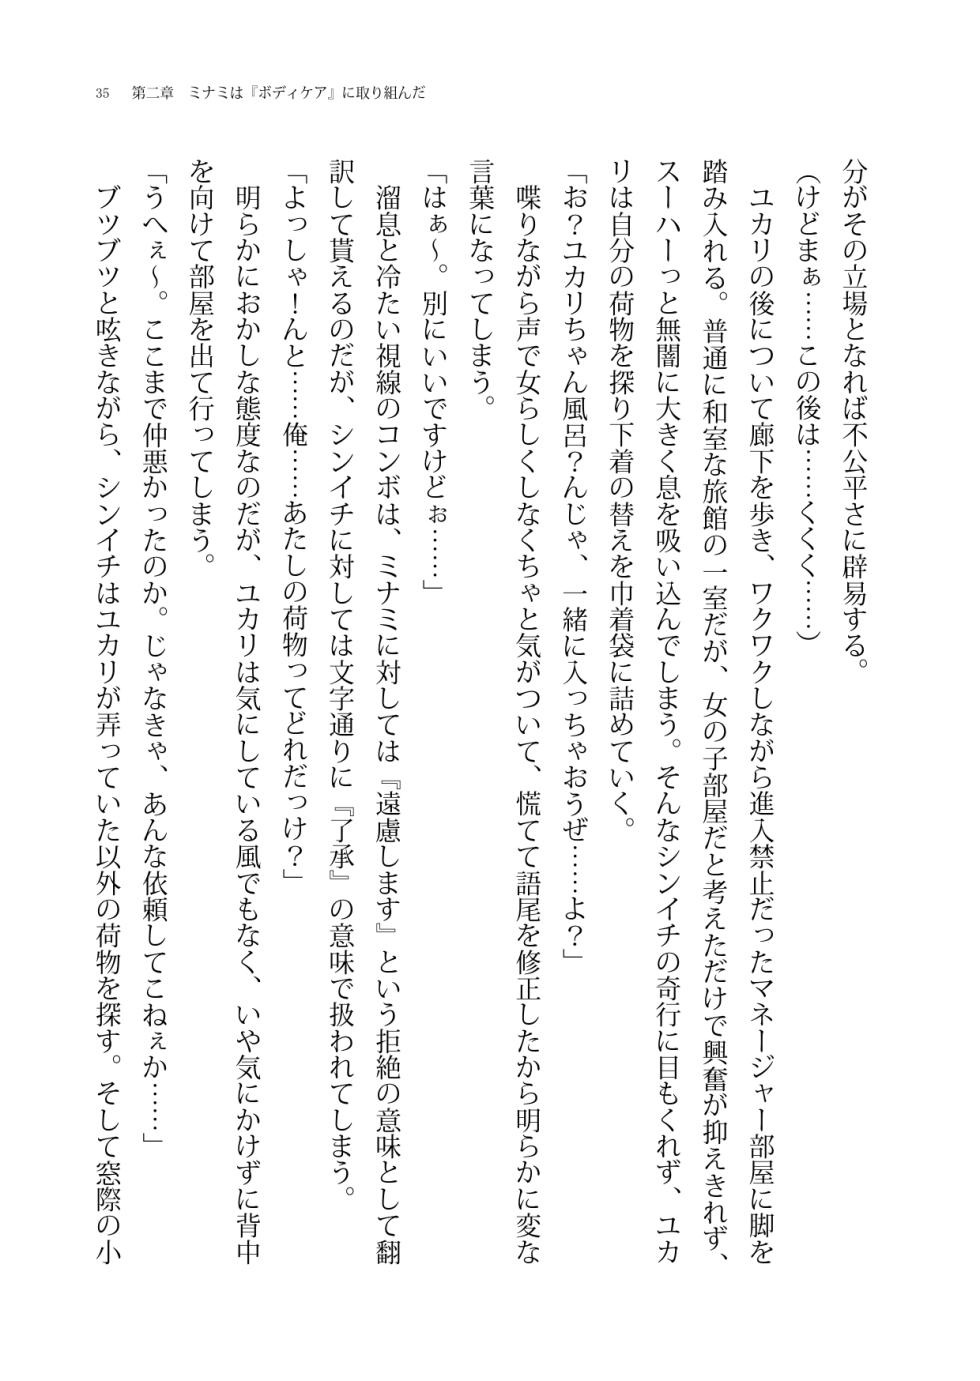 35　第二章　ミナミは『ボディケア』に取り組んだ
分がその立場となれば不公平さに辟易する。
（けどまぁ……この後は……くくく……）
　ユカリの後について廊下を歩き、ワクワクしながら進入禁止だったマネージャー部屋に脚を
踏み入れる。普通に和室な旅館の一室だが、女の子部屋だと考えただけで興奮が抑えきれず、
スーハーっと無闇に大きく息を吸い込んでしまう。そんなシンイチの奇行に目もくれず、ユカ
リは自分の荷物を探り下着の替えを巾着袋に詰めていく。
「お？ユカリちゃん風呂？んじゃ、一緒に入っちゃおうぜ……よ？」
　喋りながら声で女らしくしなくちゃと気がついて、慌てて語尾を修正したから明らかに変な
言葉になってしまう。
「はぁ～。別にいいですけどぉ……」
　溜息と冷たい視線のコンボは、ミナミに対しては『遠慮します』という拒絶の意味として翻
訳して貰えるのだが、シンイチに対しては文字通りに『了承』の意味で扱われてしまう。
「よっしゃ！んと……俺……あたしの荷物ってどれだっけ？」
　明らかにおかしな態度なのだが、ユカリは気にしている風でもなく、いや気にかけずに背中
を向けて部屋を出て行ってしまう。
「うへぇ～。ここまで仲悪かったのか。じゃなきゃ、あんな依頼してこねぇか……」
　ブツブツと呟きながら、シンイチはユカリが弄っていた以外の荷物を探す。そして窓際の小